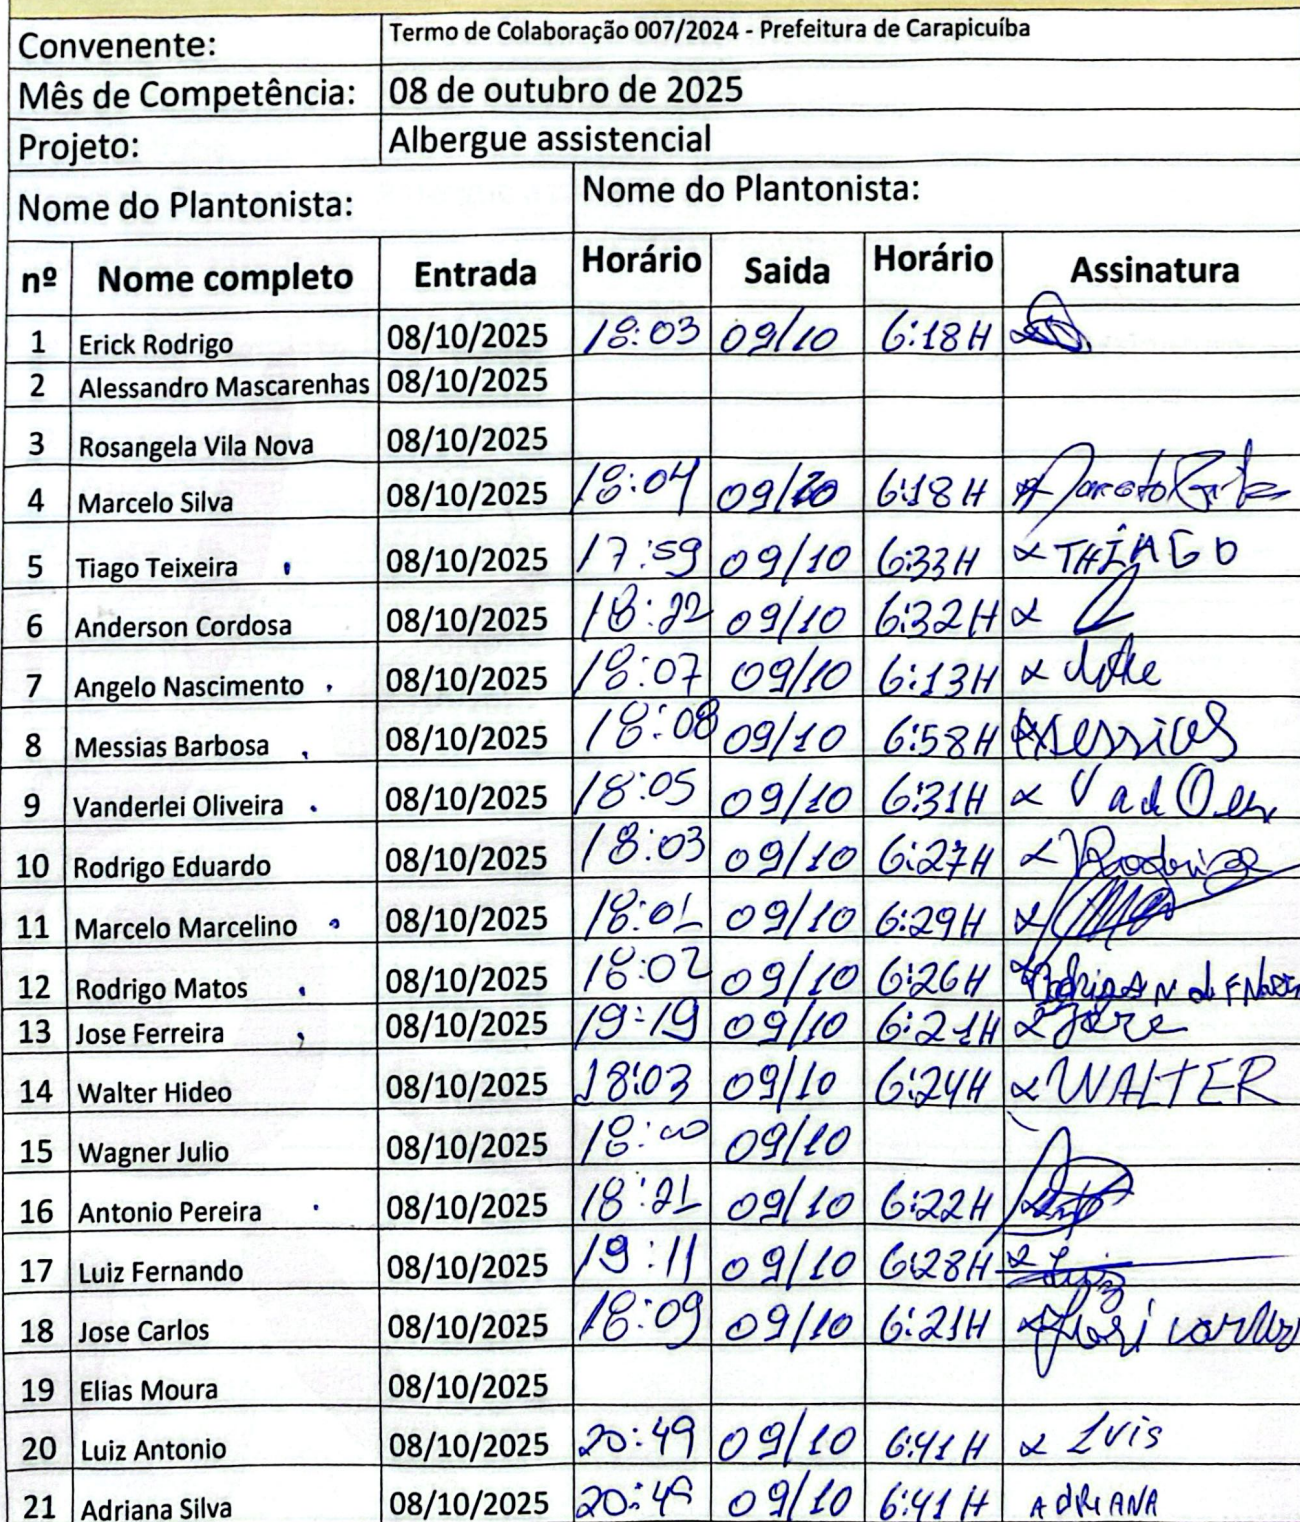 Convenente: Termo de Colaboração 007/2024 - Prefeitura de Carapicuíba
Mês de Competência: 08 de outubro de 2025
Projeto: Albergue assistencial
Nome do Plantonista: Nome do Plantonista:
nº Nome completo Entrada Horário Saida Horário Assinatura
1 Erick Rodrigo 08/10/2025 18:03 09/10 6:18H
2 Alessandro Mascarenhas 08/10/2025
3 Rosangela Vila Nova 08/10/2025
4 Marcelo Silva 08/10/2025 18:04 09/10 6:18H
5 Tiago Teixeira 08/10/2025 17:59 09/10 6:33H x THIAGO
6 Anderson Cordosa 08/10/2025 18:22 09/10 6:32H x
7 Angelo Nascimento 08/10/2025 18:07 09/10 6:13H x
8 Messias Barbosa 08/10/2025 18:08 09/10 6:58H x Messias
9 Vanderlei Oliveira 08/10/2025 18:05 09/10 6:31H x
10 Rodrigo Eduardo 08/10/2025 18:03 09/10 6:27H x Rodrigo
11 Marcelo Marcelino 08/10/2025 18:01 09/10 6:29H x
12 Rodrigo Matos 08/10/2025 18:02 09/10 6:26H x
13 Jose Ferreira 08/10/2025 19:19 09/10 6:21H x Jose
14 Walter Hideo 08/10/2025 18:03 09/10 6:24H x WALTER
15 Wagner Julio 08/10/2025 18:00 09/10
16 Antonio Pereira 08/10/2025 18:21 09/10 6:22H
17 Luiz Fernando 08/10/2025 19:11 09/10 6:28H x Luiz
18 Jose Carlos 08/10/2025 18:09 09/10 6:21H x
19 Elias Moura 08/10/2025
20 Luiz Antonio 08/10/2025 20:49 09/10 6:41H x Luis
21 Adriana Silva 08/10/2025 20:49 09/10 6:41H AdRiANA